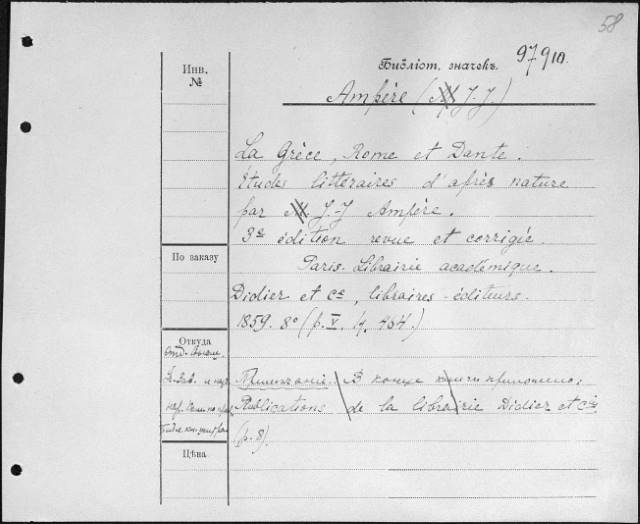 58
Библіот. значекъ. 97910.
Инв.
№
Ampère (M. J.-J.)
La Grèce, Rome et Dante.
Études littéraires d'après nature
par M. J.-J Ampère.
3e édition revue et corrigée.
По заказу
Paris. Librairie académique.
Didier et Ce, libraires-éditeurs.
1859. 8° (p. V,
464.)
Откуда
Примѣчаніе. В конце книги приложено:
Publications de la librairie Didier et Cie
(p. 8).
Цѣна